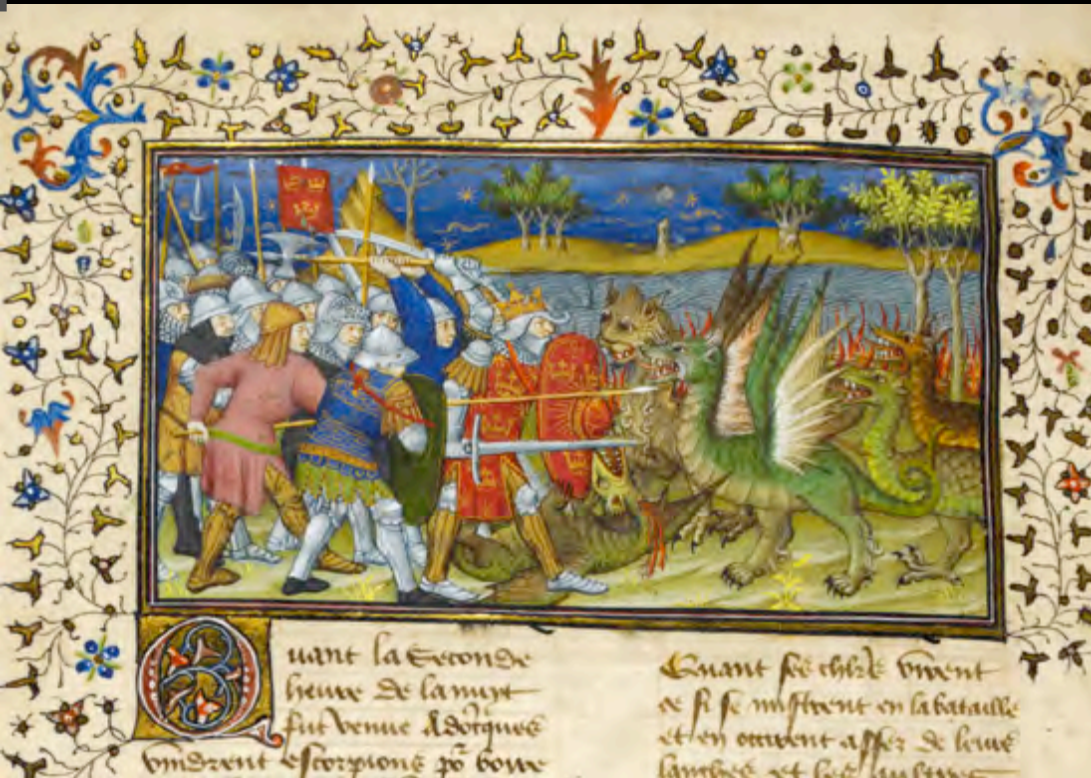 Quant la seconde
heure de la nuyt
fut venue Adoncques
vindrent escorpions po2 boire
Quant ses chlrs virent
ce si se mistrent en la bataille
et en occirent assez de leurs
lanches et les